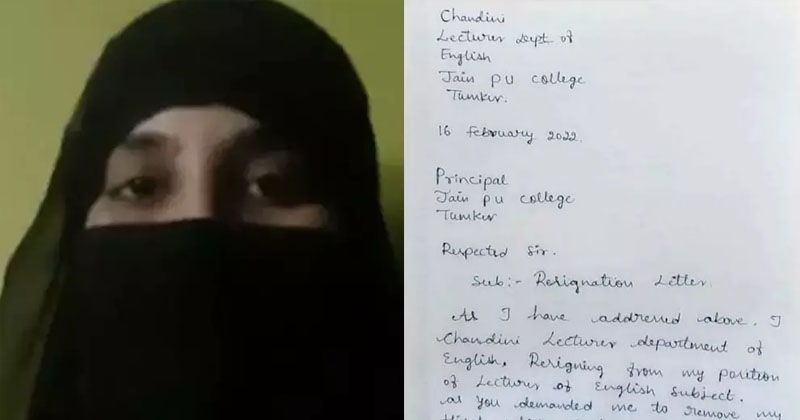 Chandini
Lecturer Dept of
English
Jain PU college
Tumkur.
16 February 2022.
Principal
Jain PU college
Tumkur
Respected Sir.
Sub:- Resignation Letter.
As I have addressed above. I
Chandini Lecturer department of
English, Resigning from my position
of Lecturer of English Subject.
as you demanded me to remove my